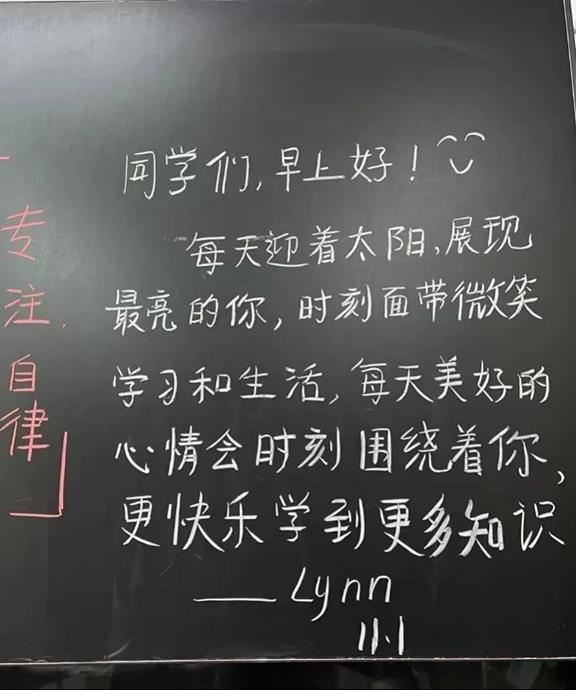 同学们,早上好!
每天迎着太阳,展现
最亮的你,时刻面带微笑
学习和生活,每天美好的
心情会时刻围绕着你,
更快乐学到更多知识
——Lynn
11.1
专注.自律」